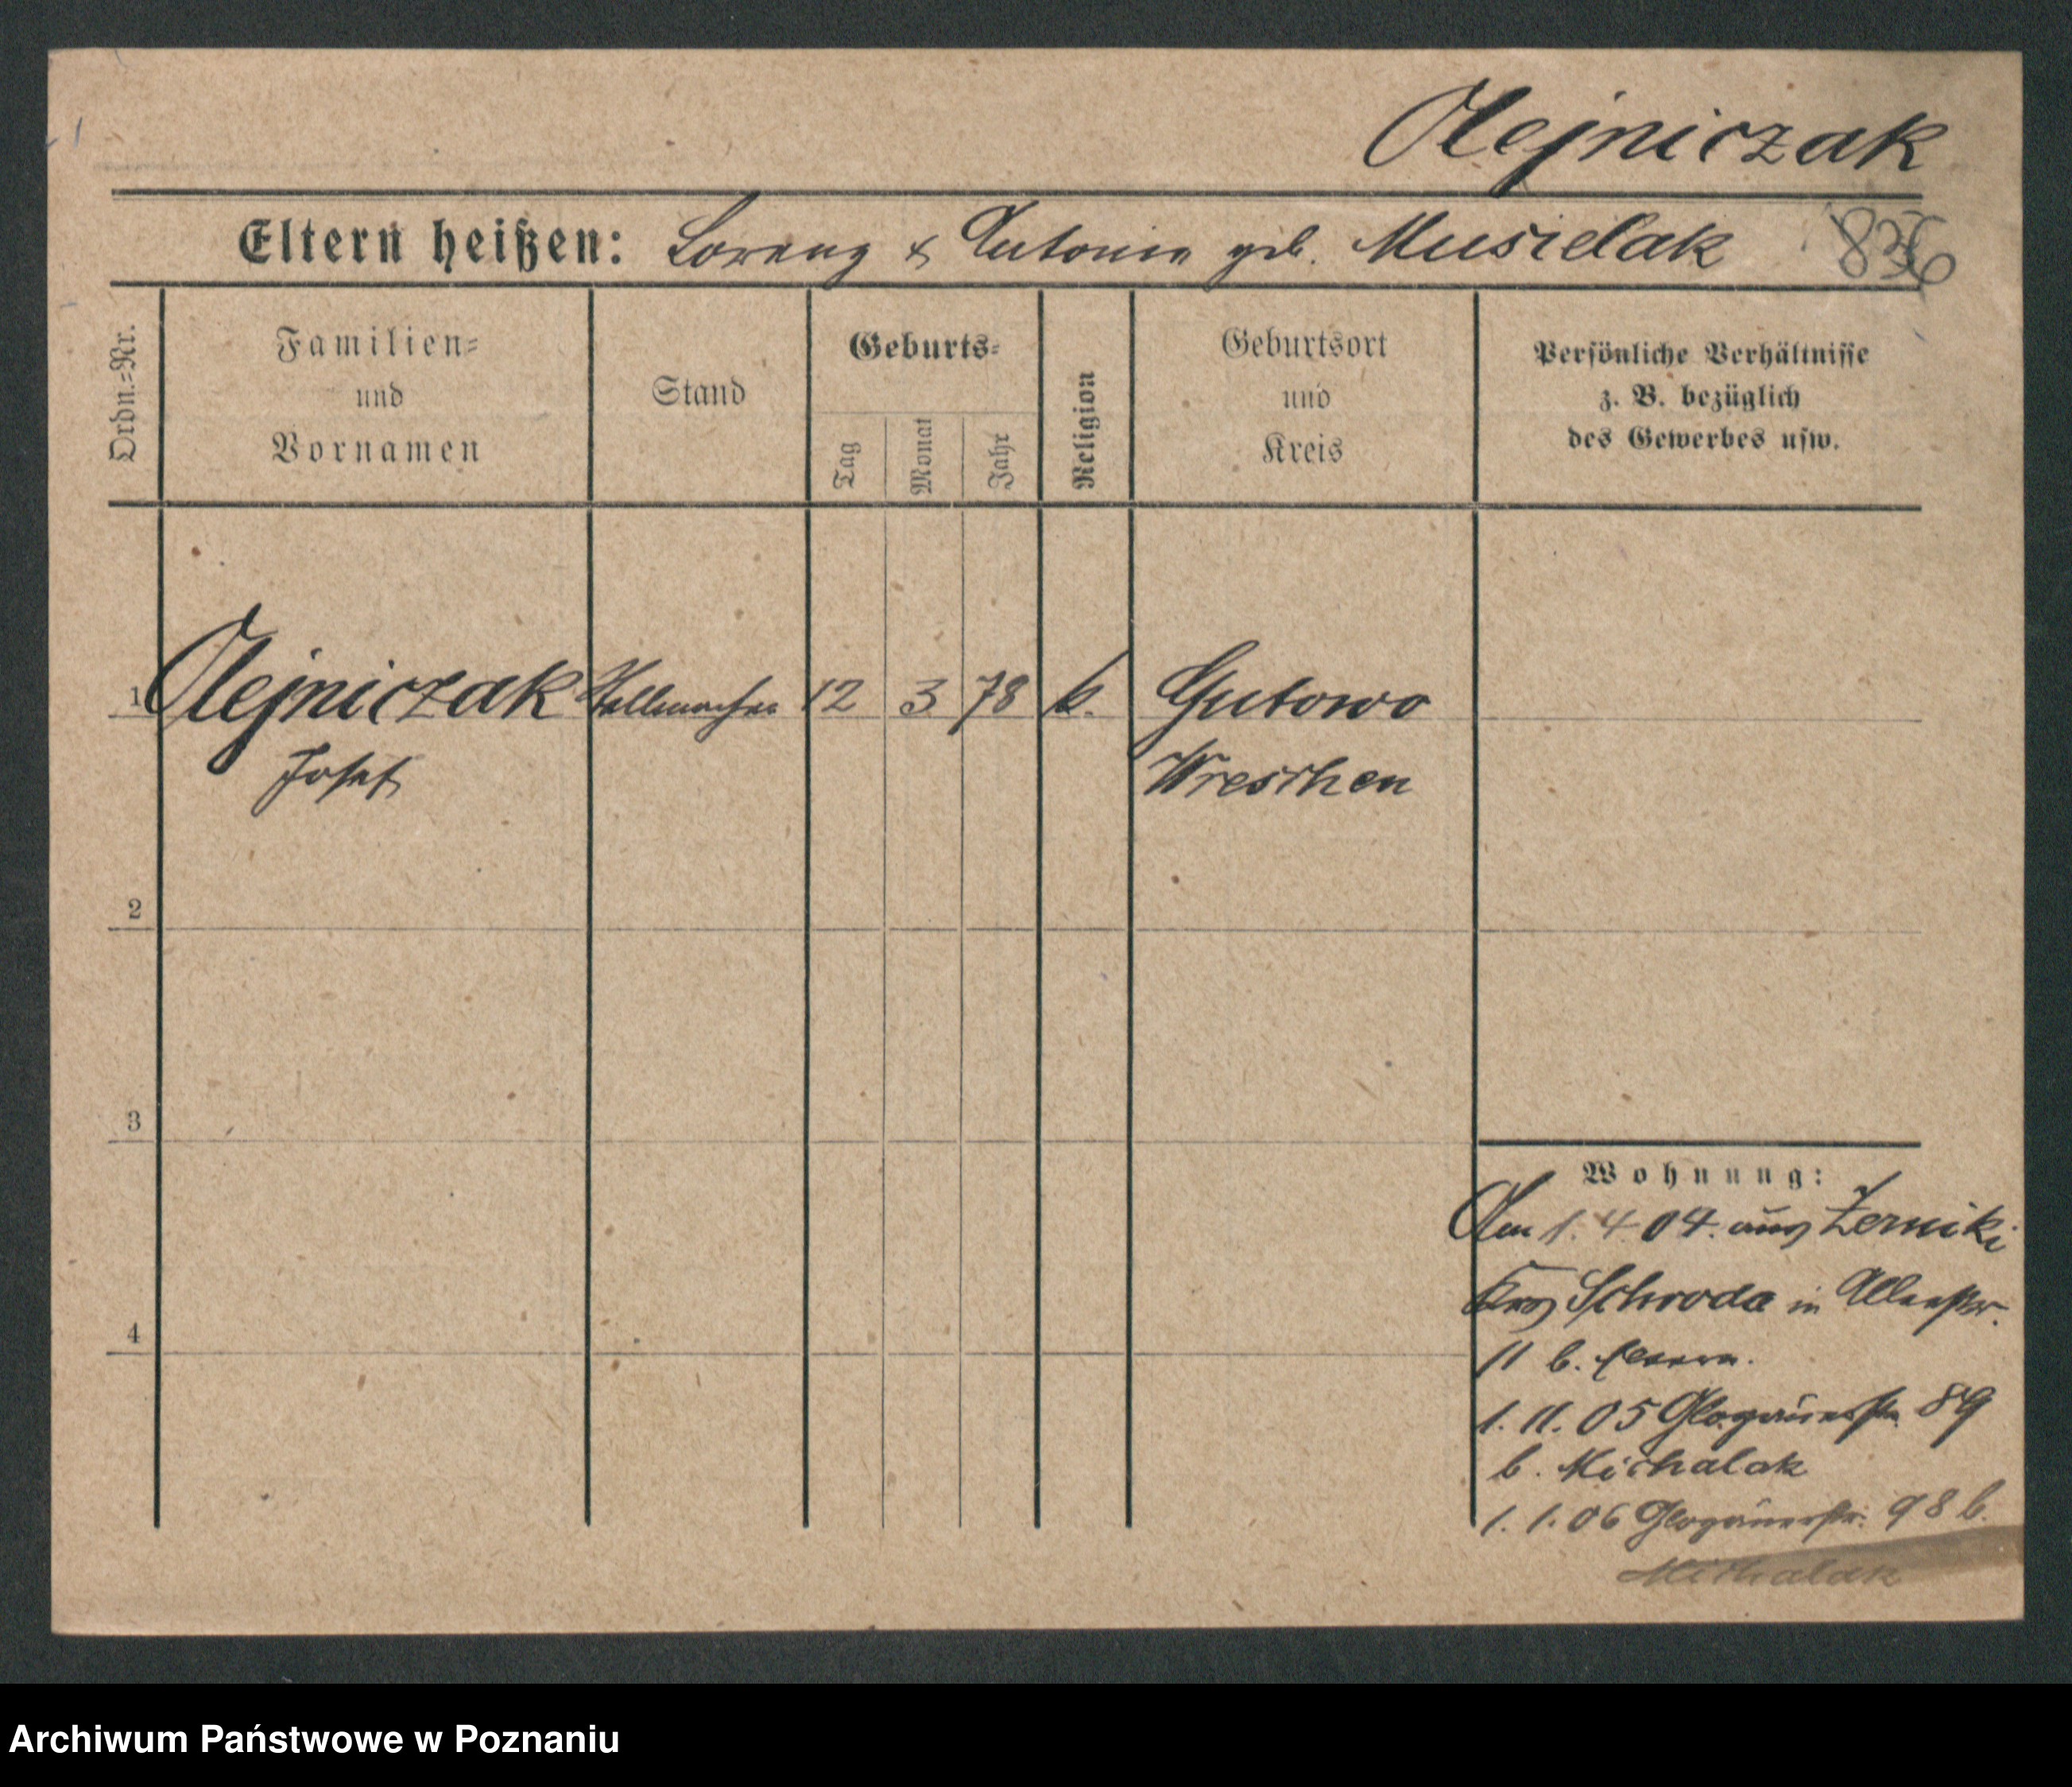 Olejniczak
Eltern heißen: Lorenz & Antonie geb. Musielak 836
Ordn.=Nr.
Familien=
und
Vornamen
Stand
Geburts=
Tag
Monat
Jahr
Religion
Geburtsort
und
Kreis
Persönliche Verhältnisse
z. B. bezüglich
des Gewerbes usw.
1 Olejniczak Stellmacher 12 3 78 k. Gutowo
Josef Wreschen
2
3
4
Wohnung:
Am 1. 4 04. aus Zerniki
Schroda in
11 b.
1. 11. 05 Glogauerstr. 89
b. Michalak
1. 1. 06 Glogauerstr. 98 b.
Michalak
Archiwum Państwowe w Poznaniu